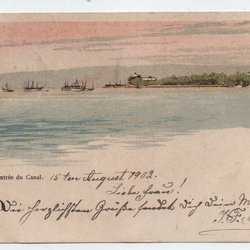 ntrée du Canal. 15ten August 1902.
Liebe Frau!
Die herzlichsten Grüße sendet Dir Dein M